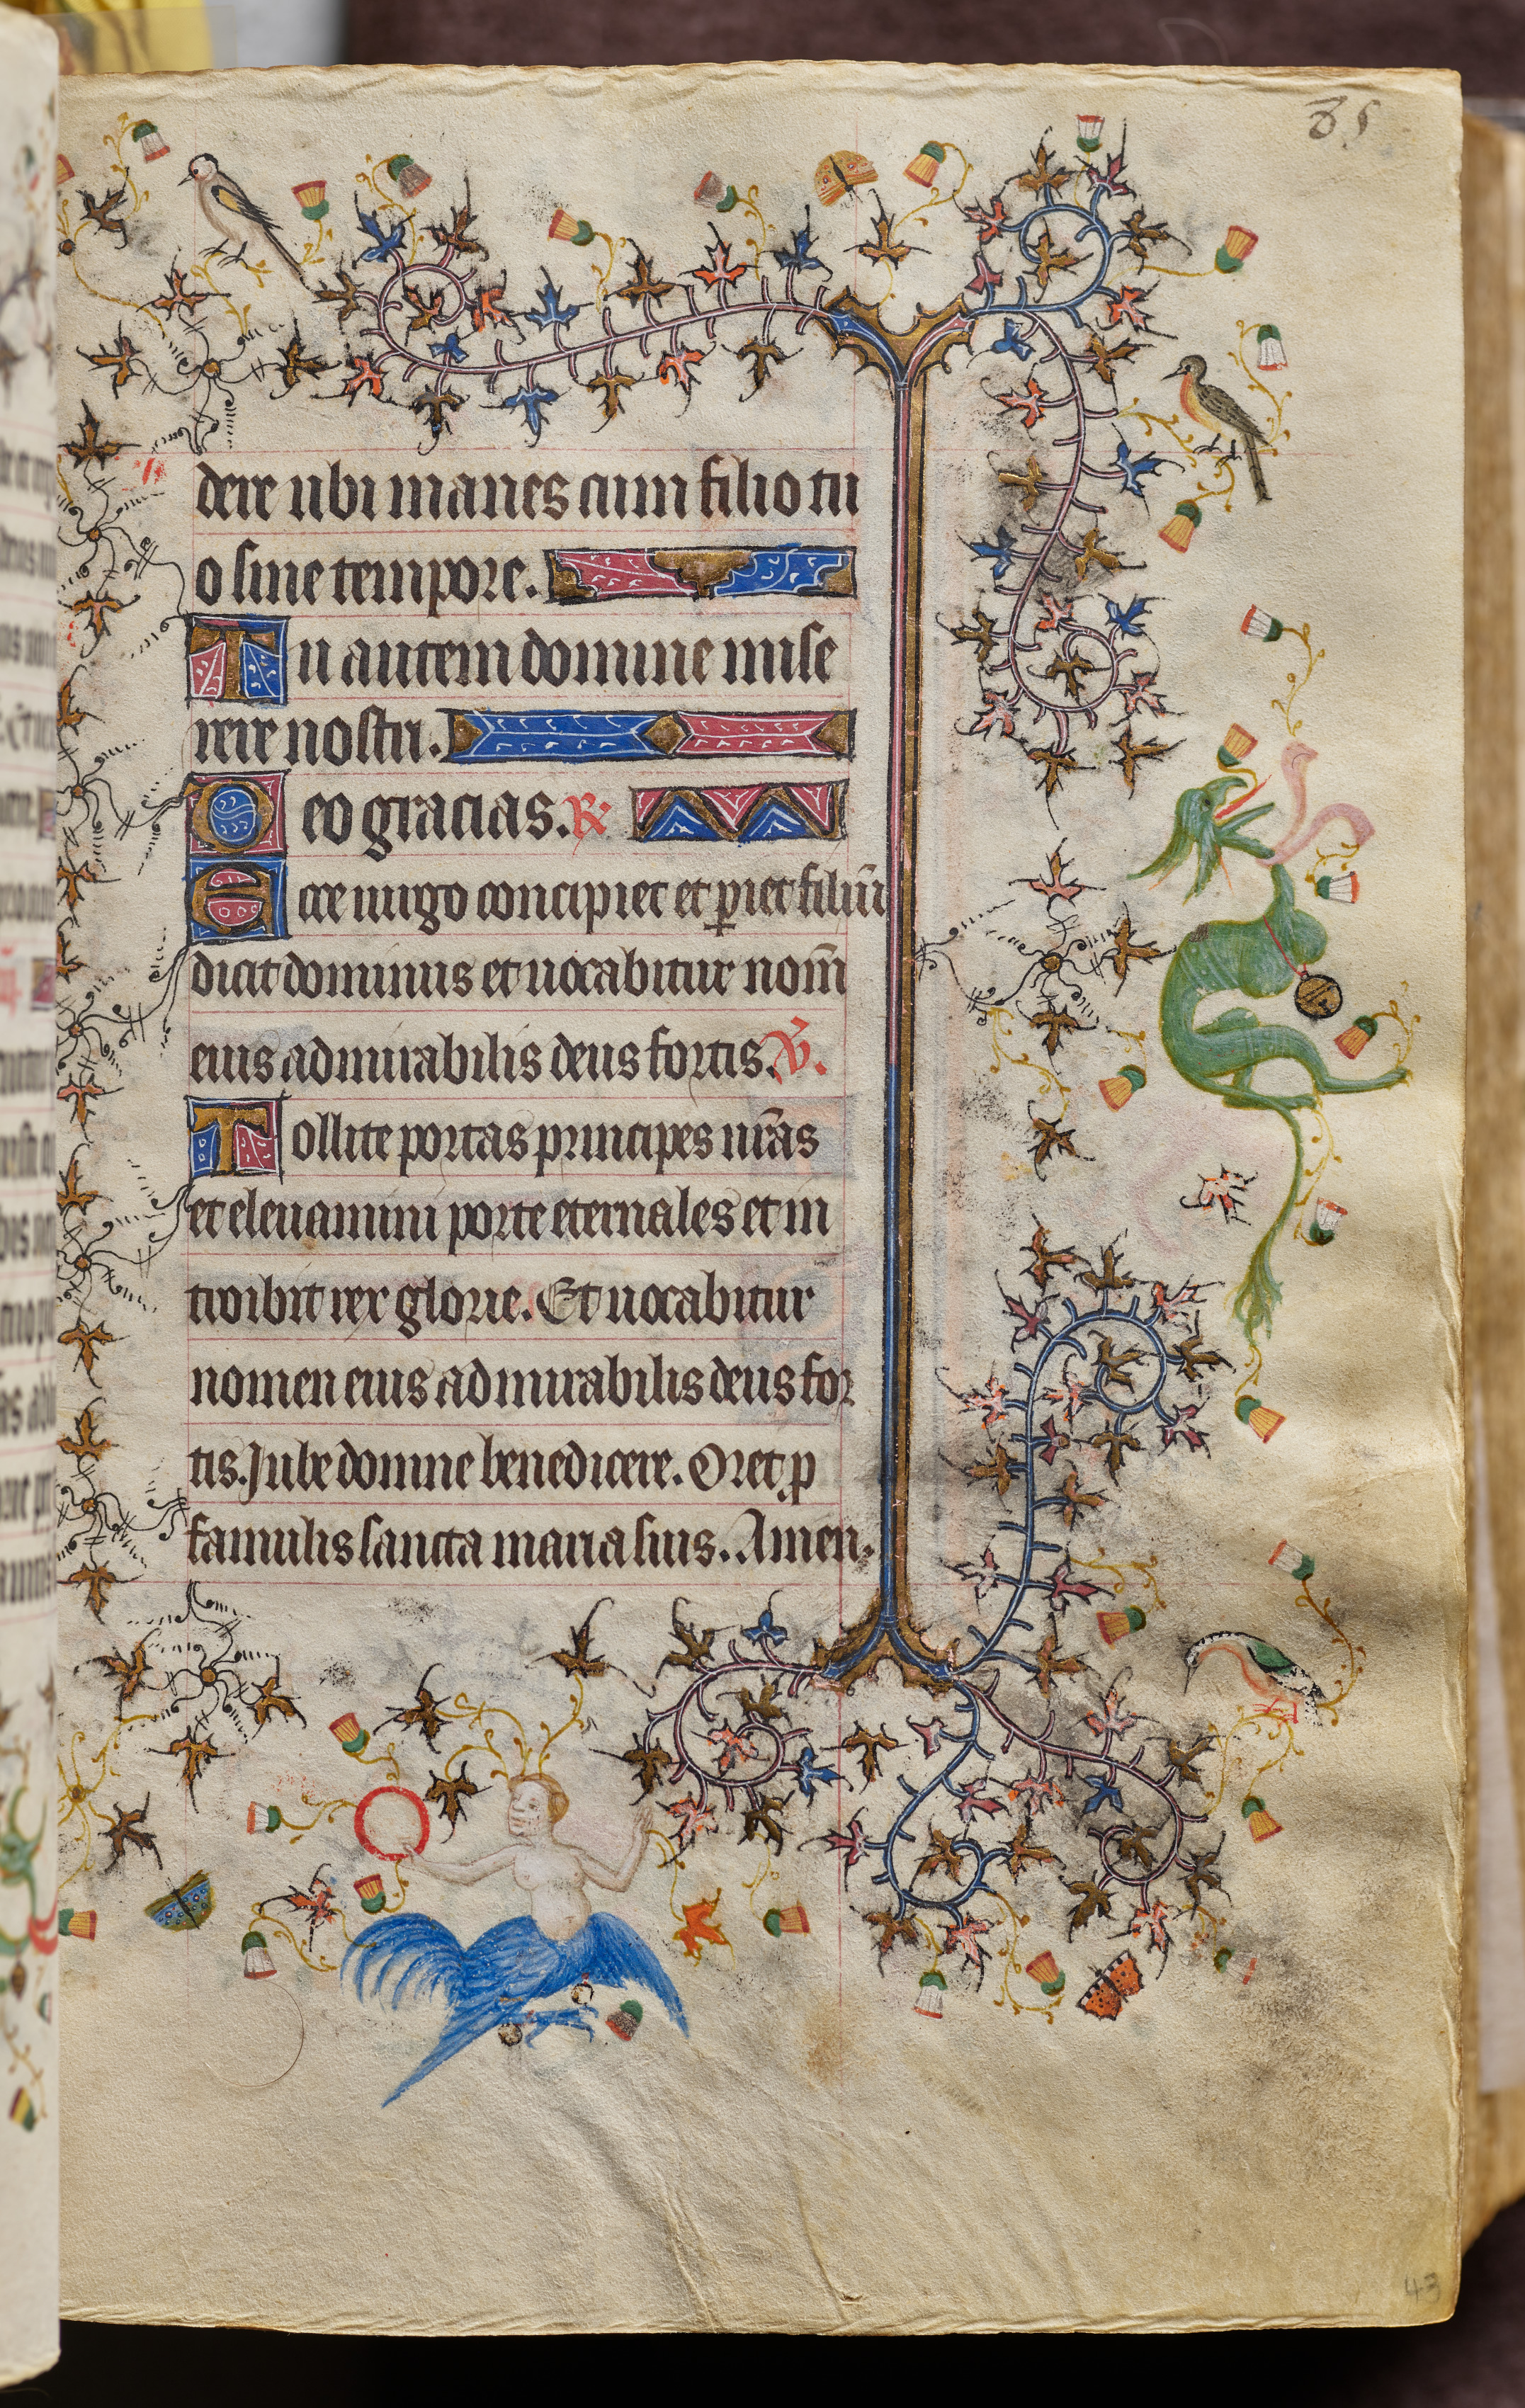 85
dere ubi manes cum filio tu
o sine tempore.
Tu autem domine mise
rere nostri.
Deo gracias. R
Ecce uirgo concipiet et ꝑiet filiū
dicit dominus et uocabitur nom̄
eius admirabilis deus fortis. V.
Tollite portas principes ur̄as
et eleuamini porte eternales et in
troibit rex glorie. Et uocabitur
nomen eius admirabilis deus for
tis. Jube domne benedicere. Oret p
famulis sancta maria suis. Amen.
43